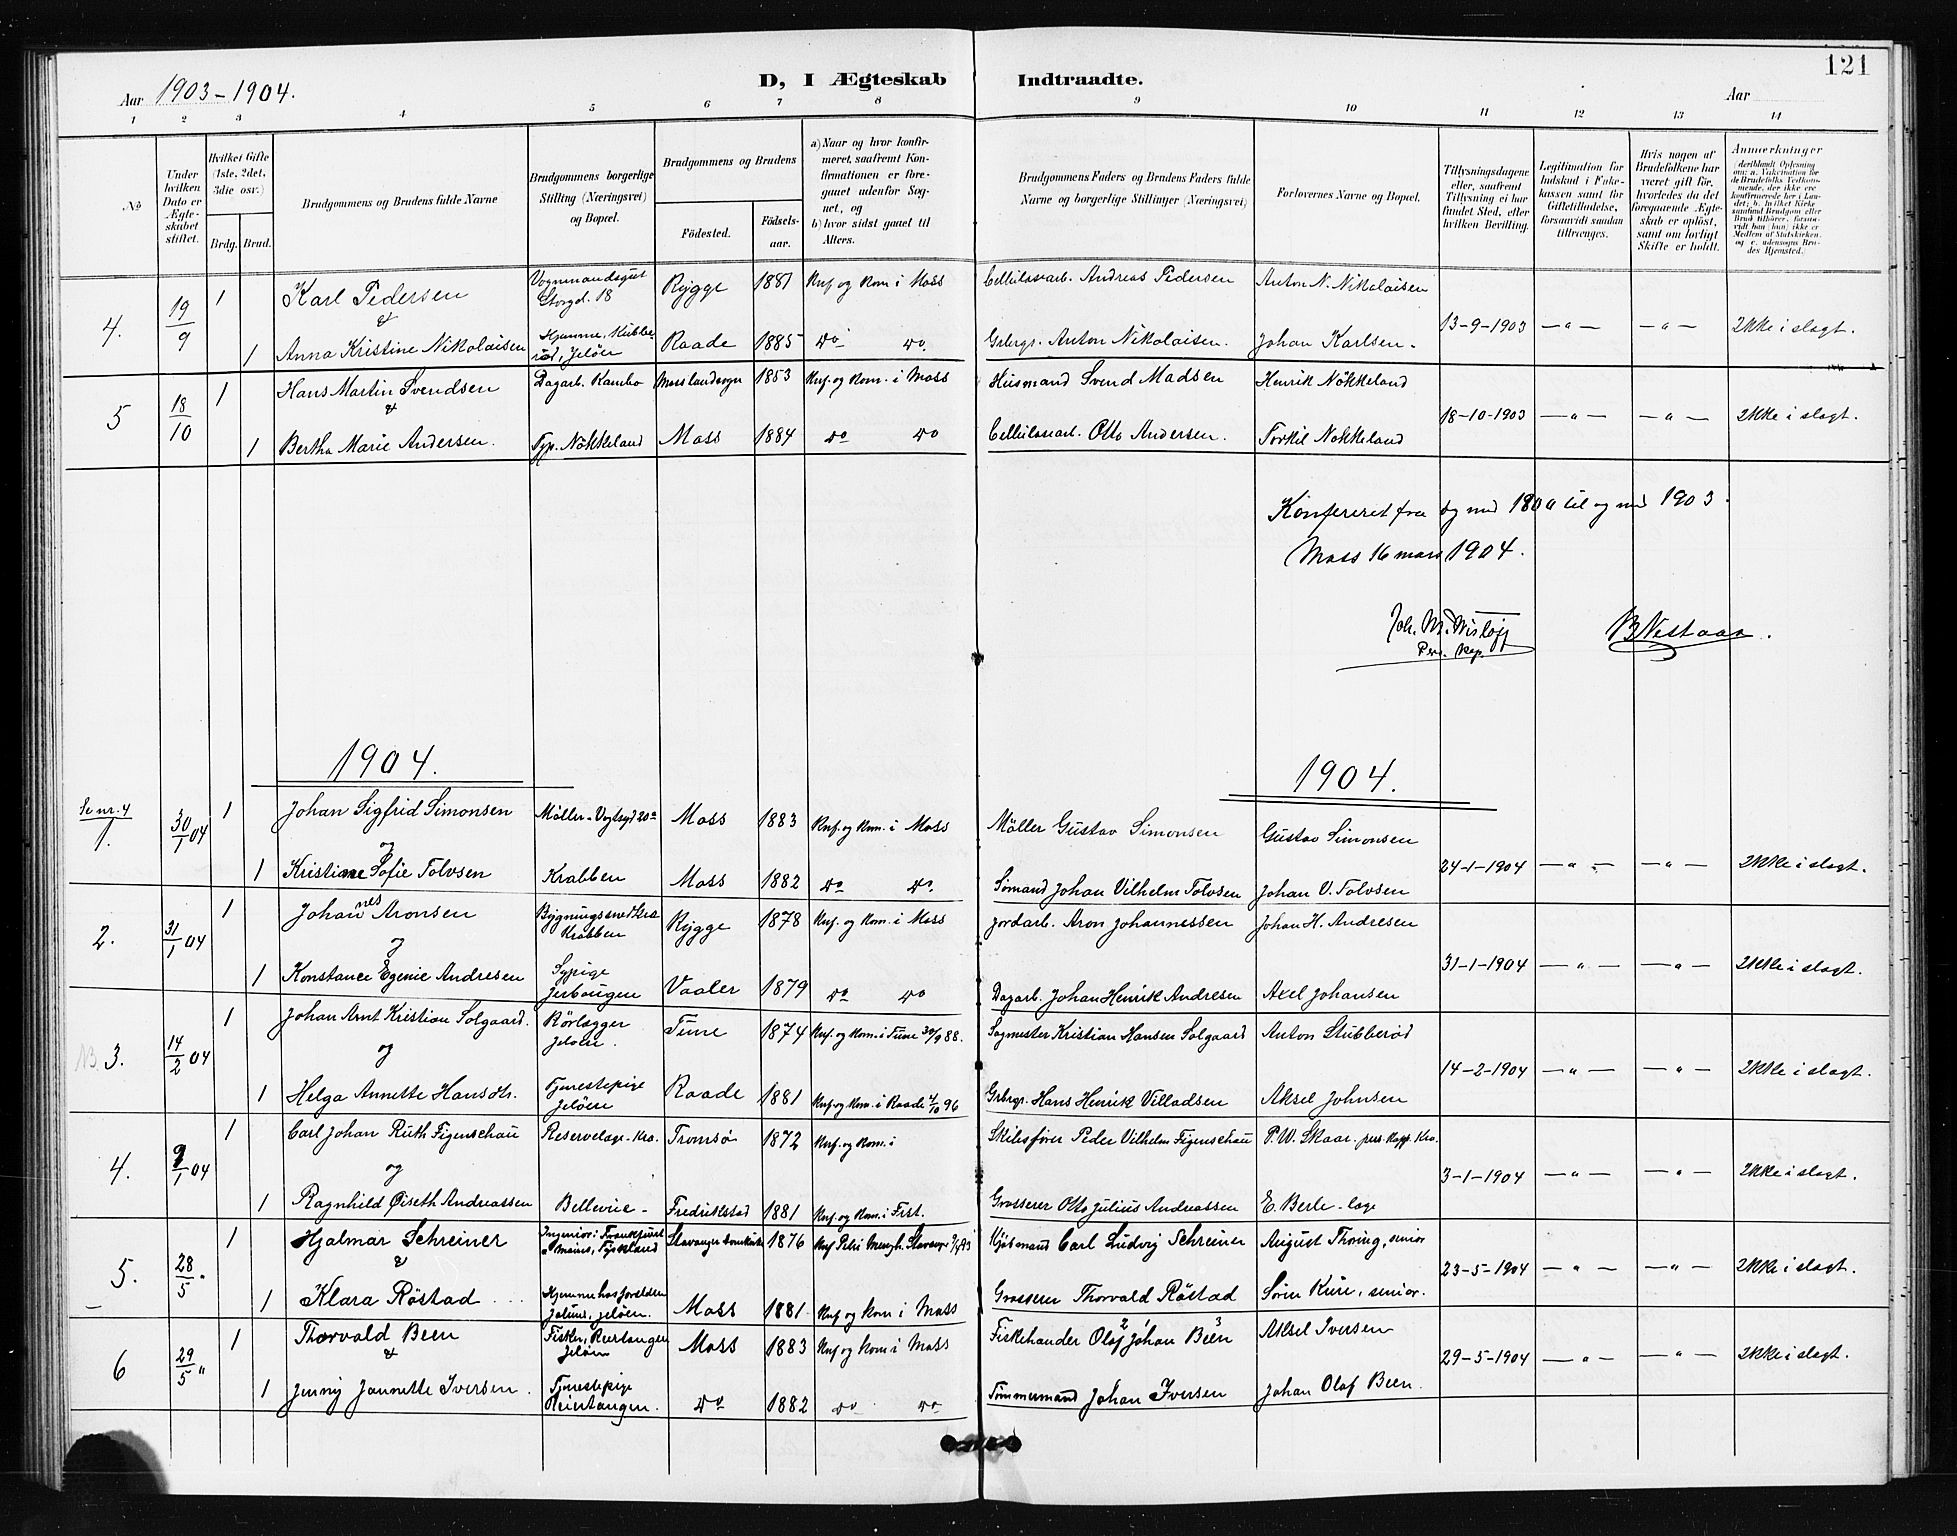 121
Aar 1903-1904. D, I Ægteskab Indtraadte. Aar
1 2 3 4 5 6 7 8 9 10 11 12 13 14
№
Under hvilken Dato er Ægteskabet stiftet.
Hvilket Gifte (1ste, 2det, 3die osv.)
Brdg. Brud.
Brudgommens og Brudens fulde Navne
Brudgommens borgerlige Stilling (Næringsvei) og Bopæl.
Brudgommens og Brudens
Fødested. Fødselsaar.
a) Naar og hvor konfirmeret, saafremt Konfirmationen er foregaaet udenfor Sognet, og
b) hvor sidst gaaet til Alters.
Brudgommens Faders og Brudens Faders fulde Navne og borgerlige Stillinger (Næringsvei)
Forlovernes Navne og Bopæl.
Tillysningsdagene eller, saafremt Tillysning ei har fundet Sted, efter hvilken Bevilling.
Legitimation for Indskud i Enkekassen samt for Giftetilladelse, forsaavidt saadan tiltrænges.
Hvis nogen af Brudefolkene har været gift før, hvorledes da det foregaaende Ægteskab er opløst, samt om lovligt Skifte er holdt.
Anmærkninger
4. 19/9 1 Karl Pedersen Vognmandsgut Storgd. 18 Rygge 1881 Knf. og Kom. i Moss Cellulosearb. Andreas Pedersen Anton N. Nikolaisen
&
1 Anna Kristine Nikolaisen Hjemme, Kubberød, Jeløen Raade 1885 Do Do Grbrgs. Anton Nikolaisen. Johan Karlsen. 13-9-1903 — " — — " — Ikke i slægt.
5 18/10 1 Hans Martin Svendsen Dagarb. Kambo Moss landsogn 1853 Knf. og Kom. i Moss Husmand Svend Madsen Henrik Nökkeland
&
1 Bertha Marie Andersen. Typ. Nökkeland Moss 1884 Do Do Cellulosearb. Otto Andersen. Torkil Nökkeland 18-10-1903 — " — — " — Ikke i slægt.
Konfereret fra og med til og med 1903.
Moss 16 mars 1904.
Joh. M. Wisløff
Pers. Kap.
1904. 1904.
Se nr. 4
1. 30/1 04 1 Johan Sigfrid Simonsen Möller - Vogtsgd 20a Moss 1883 Knf. og Kom. i Moss Möller Gustav Simonsen Gustav Simonsen
og
1 Kristine Sofie Tolvsen Krabben Moss 1882 Do Do. Sømand Johan Vilhelm Tolvsen Johan V. Tolvsen 24-1-1904 — " — — " — Ikke i slægt.
2. 31/1 04 1 Johannes Aronsen Bygningssnedker Krabben Rygge 1878 Knf. og Kom. i Moss Jordarb. Aron Johannessen Johan H. Andresen
og
1 Konstance Egenie Andresen Sypige Vaaler 1879 Do Do Dagarb. Johan Henrik Andresen Axel Johansen 31-1-1904 — " — — " — Ikke i slægt.
3. 14/2 04 1 Johan Arnt Kristian Solgaard. Rörlægger Jeløen. Tune 1874 Knf. og Kom. i Tune 30/9 88. Sagmester Kristian Hansen Solgaard Anton Stubberöd
og
1 Helga Annette Hansdtr. Tjenestepige Jeløen Raade 1881 Knf. og Kom. i Raade 4/10 96 Grbrgs. Hans Henrik Villadsen Aksel Johnsen 14-2-1904 — " — — " — Ikke i slægt.
4. 9/1 04 1 Carl Johan Ruth Figenschau Reservelæge - Kra. Tromsø 1872 Knf. og Kom. i Skibsfører Peder Vilhelm Figenschau P. W. Skaar. pers. Kapp. Kra.
og
1 Ragnhild Øiseth Andreassen Bellevue - Fredrikstad 1881 Knf. og Kom. i Frst. Grosserer Otto Julius Andreassen E. Berle - læge 3-1-1904 — " — — " — Ikke i slægt.
5. 28/5 " 1 Hjalmar Schreiner Ingeniør i Frankfurt a Mains, Tyskland Stavanger domkirke 1876 Knf Petri Mengh. Stavanger Kjöbmand Carl Ludvig Schreiner August Thoring, senior
&
1 Klara Röstad Hjemme hos forældre Jeløen. Moss 1881 Knf og Kom i Moss Grosserer Thorvald Röstad Sörin Kure, senior. 23-5-1904 — " — — " — Ikke i slægt.
6 29/5 " 1 Thorvald Been Fisker, Reiertangen Jeløen Moss 1883 Knf og Kom i Moss Fiskehander Olaf Johan Been Aksel Iversen
&
1 Jenny Jannette Iversen. Tjenestepige Reiertangen. Do 1882 Do Do Tømmermand Johan Iversen Johan Olaf Been. 29-5-1904 — " — — " — Ikke i slægt.